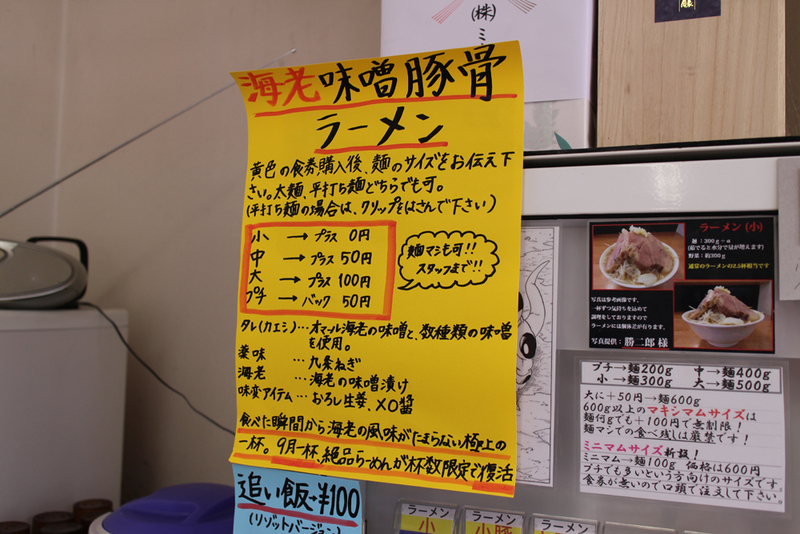 (株)
ミ
海老味噌豚骨
ラーメン
黄色の食券購入後、麺のサイズをお伝え下
さい。太麺、平打ち麺どちらでも可。
(平打ち麺の場合は、クリップをはさんで下さい)
小 → プラス 0円
中 → プラス 50円
大 → プラス 100円
プチ → バック 50円
麺マシも可!!
スタッフまで!!
タレ(カエシ)…オマール海老の味噌と、数種類の味噌
を使用。
薬味 …九条ねぎ
海老 …海老の味噌漬け
味変アイテム…おろし生姜、XO醤
食べた瞬間から海老の風味がたまらない極上の
一杯。9月一杯、絶品らーめんが杯数限定で復活
追い飯→¥100
(リゾットバージョン)
ラーメン(小)
麺:300g=α
(茹でると水分で量が増えます)
野菜:約300g
通常のラーメンの2.5杯相当です
写真は参考画像です。
一杯ずつ気持ちを込めて
調理をしておりますので
ラーメンには個体差が有ります。
写真提供:勝二郎 様
プチ→麺200g 中→麺400g
小→麺300g 大→麺500g
大に+50円→麺600g
600g以上のマキシマムサイズは
麺何gでも+100円で無制限!
麺マシでの食べ残しは厳禁です!
ミニマムサイズ新設!
ミニマム→麺100g 価格は600円
プチでも多いという方向けのサイズです。
食券が無いので口頭で注文して下さい。
ラーメン
小
ラーメン
小豚
ラーメン